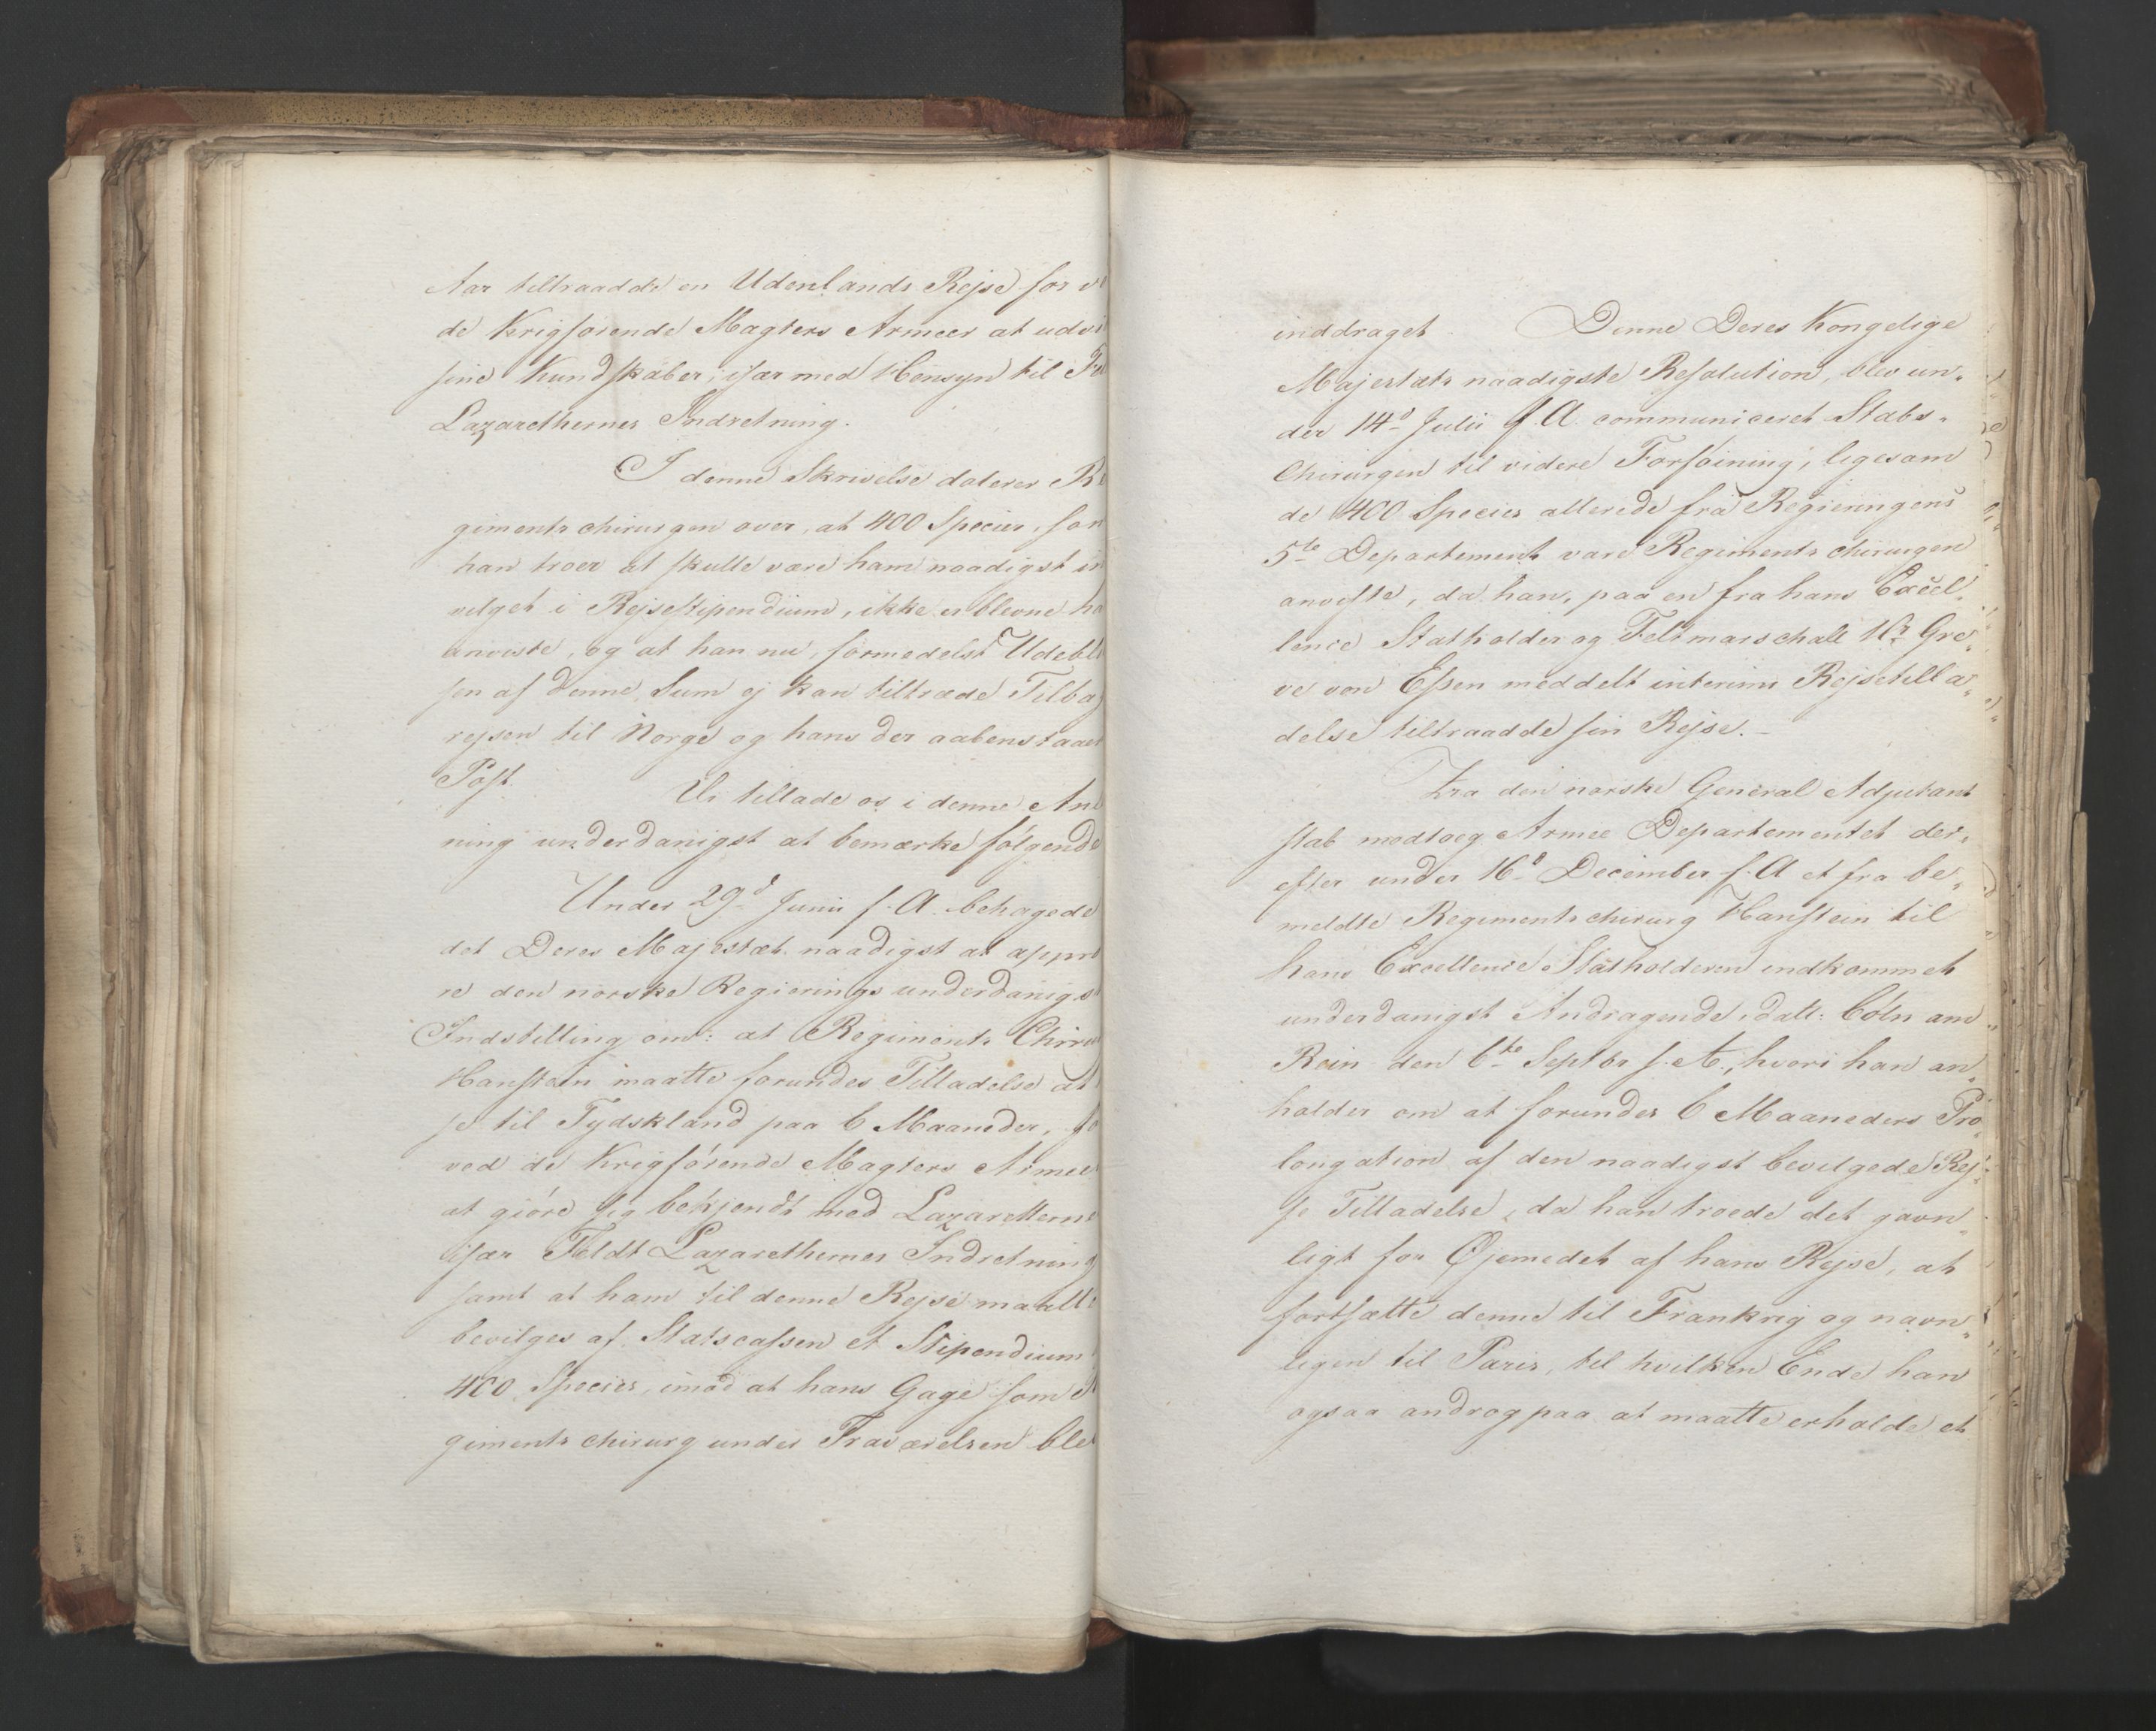 Aar tiltraadde en Udenlands Rejse for v
de Krigførende Magters Armeer at udvi
sine Kundskaber, især med Hensyn til Fel
Lazarethernes Indretning.
I denne Skrivelse dolerer Re
gimentschirurgen over, at 400 Species, som
han troer at skulle være ham naadigst in
vilget i Rejsestipendium, ikke er blevne ha
anviste, og at han nu, formedelst Udebli
sen af denne Sum ej kan tiltræde Tilba
rejsen til Norge og hans der aabenstaaen
Post.
Vi tillade os i denne An
ning underdanigst at bemærke følgende
Under 29d Junii f. A. behagede
det Deres Majestæt naadigst at appro
re den norske Regierings underdanigst
Indstilling om: at Regiments Chirur
Hanstein maatte forundes Tilladelse at
se til Tydskland paa 6 Maaneder, fo
ved de Krigførende Magters Armee
at giøre sig bekjendt med Lazaretterne
især Feldt Lazarethernes Indretning
samt at ham til denne Rejse maatte
bevilges af Statscassen et Stipendium
400 Species, imod at hans Gage som R
giments chirurg under Fraværelsen ble
inddraget. Denne Deres Kongelige
Majestæts naadigste Resolution, blev un„
der 14d Julii f. A. communiceret Stabs„
Chirurgen til videre Forføining, ligesom
de 400 Species allerede fra Regieringens
5te Departement vare Regiments chirurgen
anviste, da han, paa en fra hans Excel„
lence Statholder og Feltmarschall Hr Gre„
ve von Essen meddelt interims Rejsetilla„
delse tiltraadde sin Rejse. –
Fra den norske General Adjutant
stab modtoeg Armee Departementet der„
efter under 16d December f. A et fra be„
meldte Regimentschirurg Hanstein til
hans Excellence Statholderen indkommet
underdanigst Andragende, datt: Cöln am
Rein den 6te Septbr f. A., hvori han an„
holder om at forundes 6 Maaneders Pro„
longation af den naadigst bevilgede Rej„
se Tilladelse, da han troede det gavn„
ligt for Øjemedet af hans Rejse, at
fortsætte denne til Frankrig og navn„
ligen til Paris, til hvilken Ende han
ogsaa androg paa at maatte erholde et